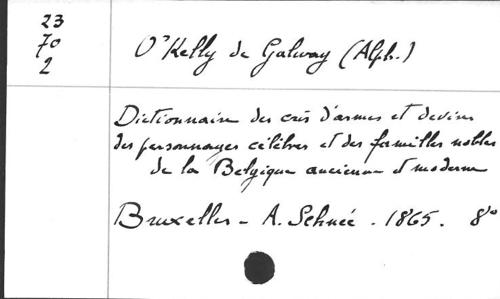 23
70
2
O'Kelly de Galway (Alph.)
Dictionnaire des cris d'armes et devises
des personnages célèbres et des familles nobles
de la Belgique ancienne et moderne
Bruxelles - A. Schnée. 1865. 8°